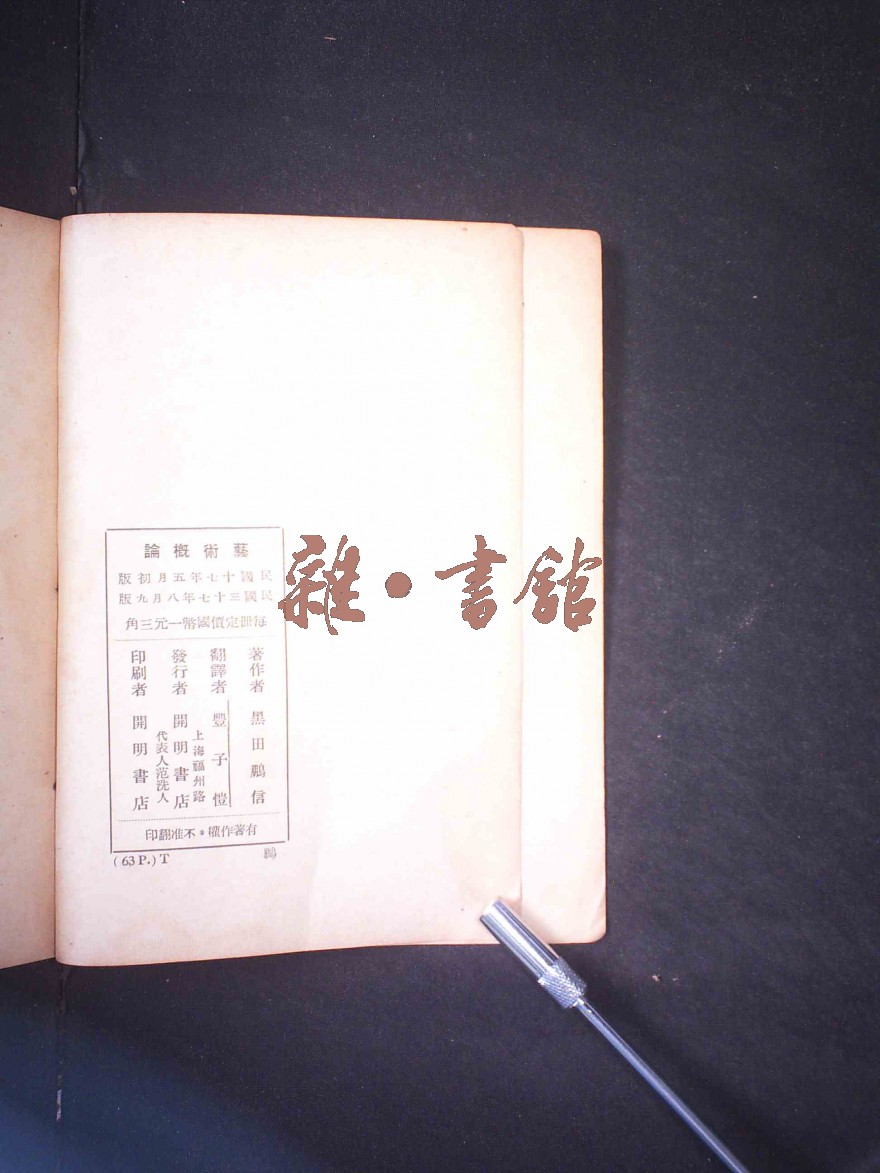 藝術概論
民國十七年五月初版
民國三十七年八月九版
每冊定價國幣一元三角
著作者 黑田鵬信
翻譯者 豐子愷
發行者 開明書店
上海福州路
代表人范洗人
印刷者 開明書店
有著作權•不准翻印
(63 P.) T
雜•書館